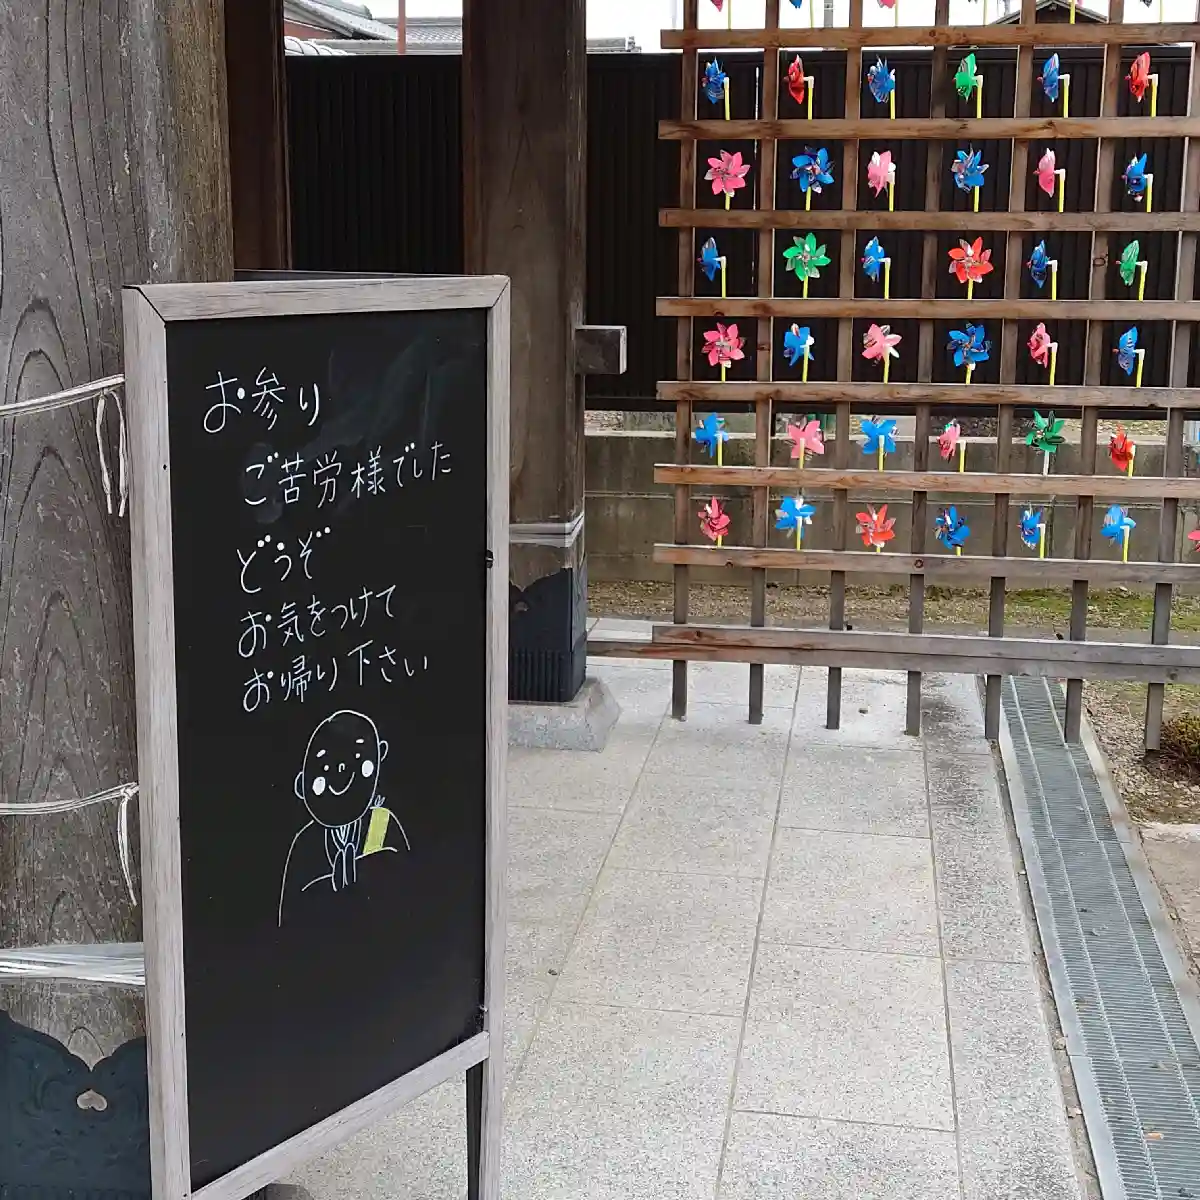 お参り
ご苦労様でした
どうぞ
お気をつけて
お帰り下さい